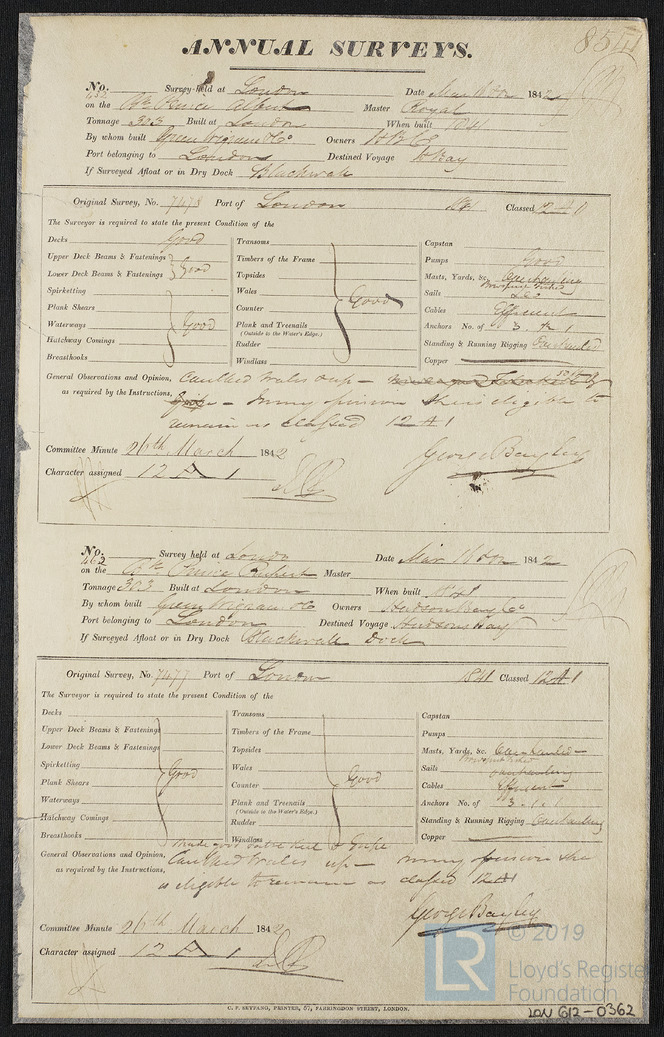 ANNUAL SURVEYS.
No. Survey held at London Date Mar 1842
on the Bk Prince Albert Master Royal
Tonnage 303 Built at London When built 1841
By whom built Green Wigram & Co Owners HBC
Port belonging to London Destined Voyage HBay
If Surveyed Afloat or in Dry Dock Blackwall
Original Survey, No. 7473 Port of London 1841 Classed 12 A 1
The Surveyor is required to state the present Condition of the
Decks Good
Upper Deck Beams & Fastenings
Lower Deck Beams & Fastenings Good
Spirketting
Plank Shears
Waterways Good
Hatchway Comings
Breasthooks
Transoms
Timbers of the Frame
Topsides
Wales
Counter Good
Plank and Treenails
(Outside to the Water's Edge.)
Rudder
Windlass
Capstan
Pumps Good
Masts, Yards, &c. Overhauling
Sails Do
Cables Efficient
Anchors No. of 3. 1. 1
Standing & Running Rigging Overhauled
Copper
General Observations and Opinion, Caulked Wales up –
as required by the Instructions, – In my opinion she is eligible to
remain as classed 12 A 1
Committee Minute 26th March 1842 George Bayley
Character assigned 12 A 1
No. Survey held at London Date Mar 1842
462
on the Bk Prince Rupert Master
Tonnage 303 Built at London When built 1841
By whom built Green Wigram & Co Owners Hudson Bay Co
Port belonging to London Destined Voyage Hudsons Bay
If Surveyed Afloat or in Dry Dock Blackwall Dock
Original Survey, No. 7477 Port of London 1841 Classed 12 A 1
The Surveyor is required to state the present Condition of the
Decks
Upper Deck Beams & Fastenings
Lower Deck Beams & Fastenings
Spirketting
Plank Shears Good
Waterways
Hatchway Comings
Breasthooks
Transoms
Timbers of the Frame
Topsides
Wales
Counter Good
Plank and Treenails
(Outside to the Water's Edge.)
Rudder
Windlass
Capstan
Pumps
Masts, Yards, &c. Overhauled
Sails overhauling
Cables Efficient
Anchors No. of 3. 1. 1
Standing & Running Rigging Overhauling
Copper
Made good false Keel & Gripe
General Observations and Opinion, Caulked Wales up – In my opinion she
as required by the Instructions, is eligible to remain as classed 12 A 1
George Bayley
Committee Minute 26th March 1842
Character assigned 12 A 1
C. F. SEYFANG, PRINTER, 57, FARRINGDON STREET, LONDON.
LR © 2019
Lloyd's Register
Foundation
LON 612-0362